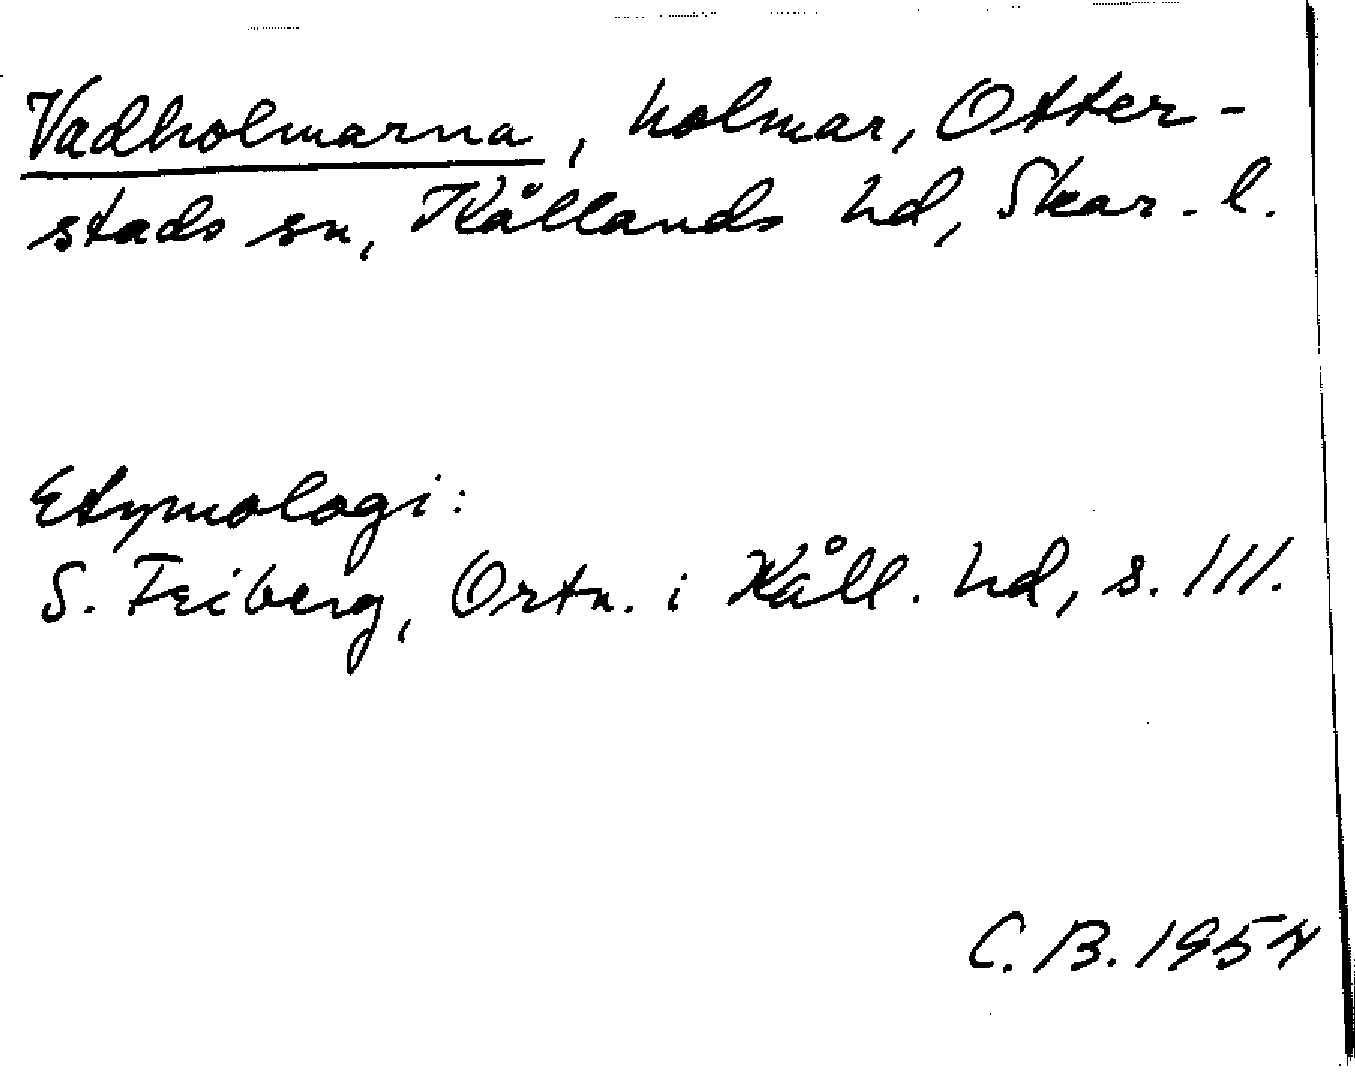 Vadholmarna, holmar, Otter-
stads sn, Kållands hd, Skar. l.
Etymologi:
S. Feiberg, Ortn. i Kåll. hd, s. 111.
C. B. 1954